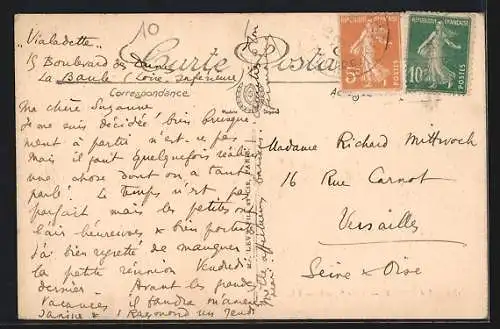 10
"Vialadette"
15 Boulevard des
La Baule (Loire Inférieure)
Carte Postale
Correspondance
REPUBLIQUE FRANÇAISE
5c
POSTES
REPUBLIQUE FRANÇAISE
10c
POSTES
Ma chère Suzanne
Je me suis décidée bien brusque-
ment à partir n'est-ce pas
Mais il faut quelquefois réali-
une chose dont on a tant
parlé! Le temps n'est pas
parfait mais les petits
heureuses & bien portan
J'ai bien regretté de manquer
la petite réunion Vendredi
dernier. Avant les grandes
Vacances il faudra m'amener
Janine & Raymond un Jeudi
Mille affectueux baisers
LEVY
PARIS
Madame Richard Mittwoch
16 Rue Carnot
Versailles
Seine & Oise